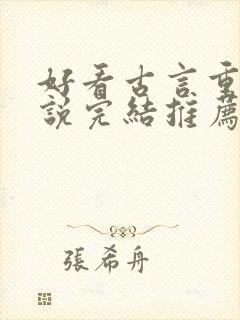 好看古言重
說完結推薦
張希舟